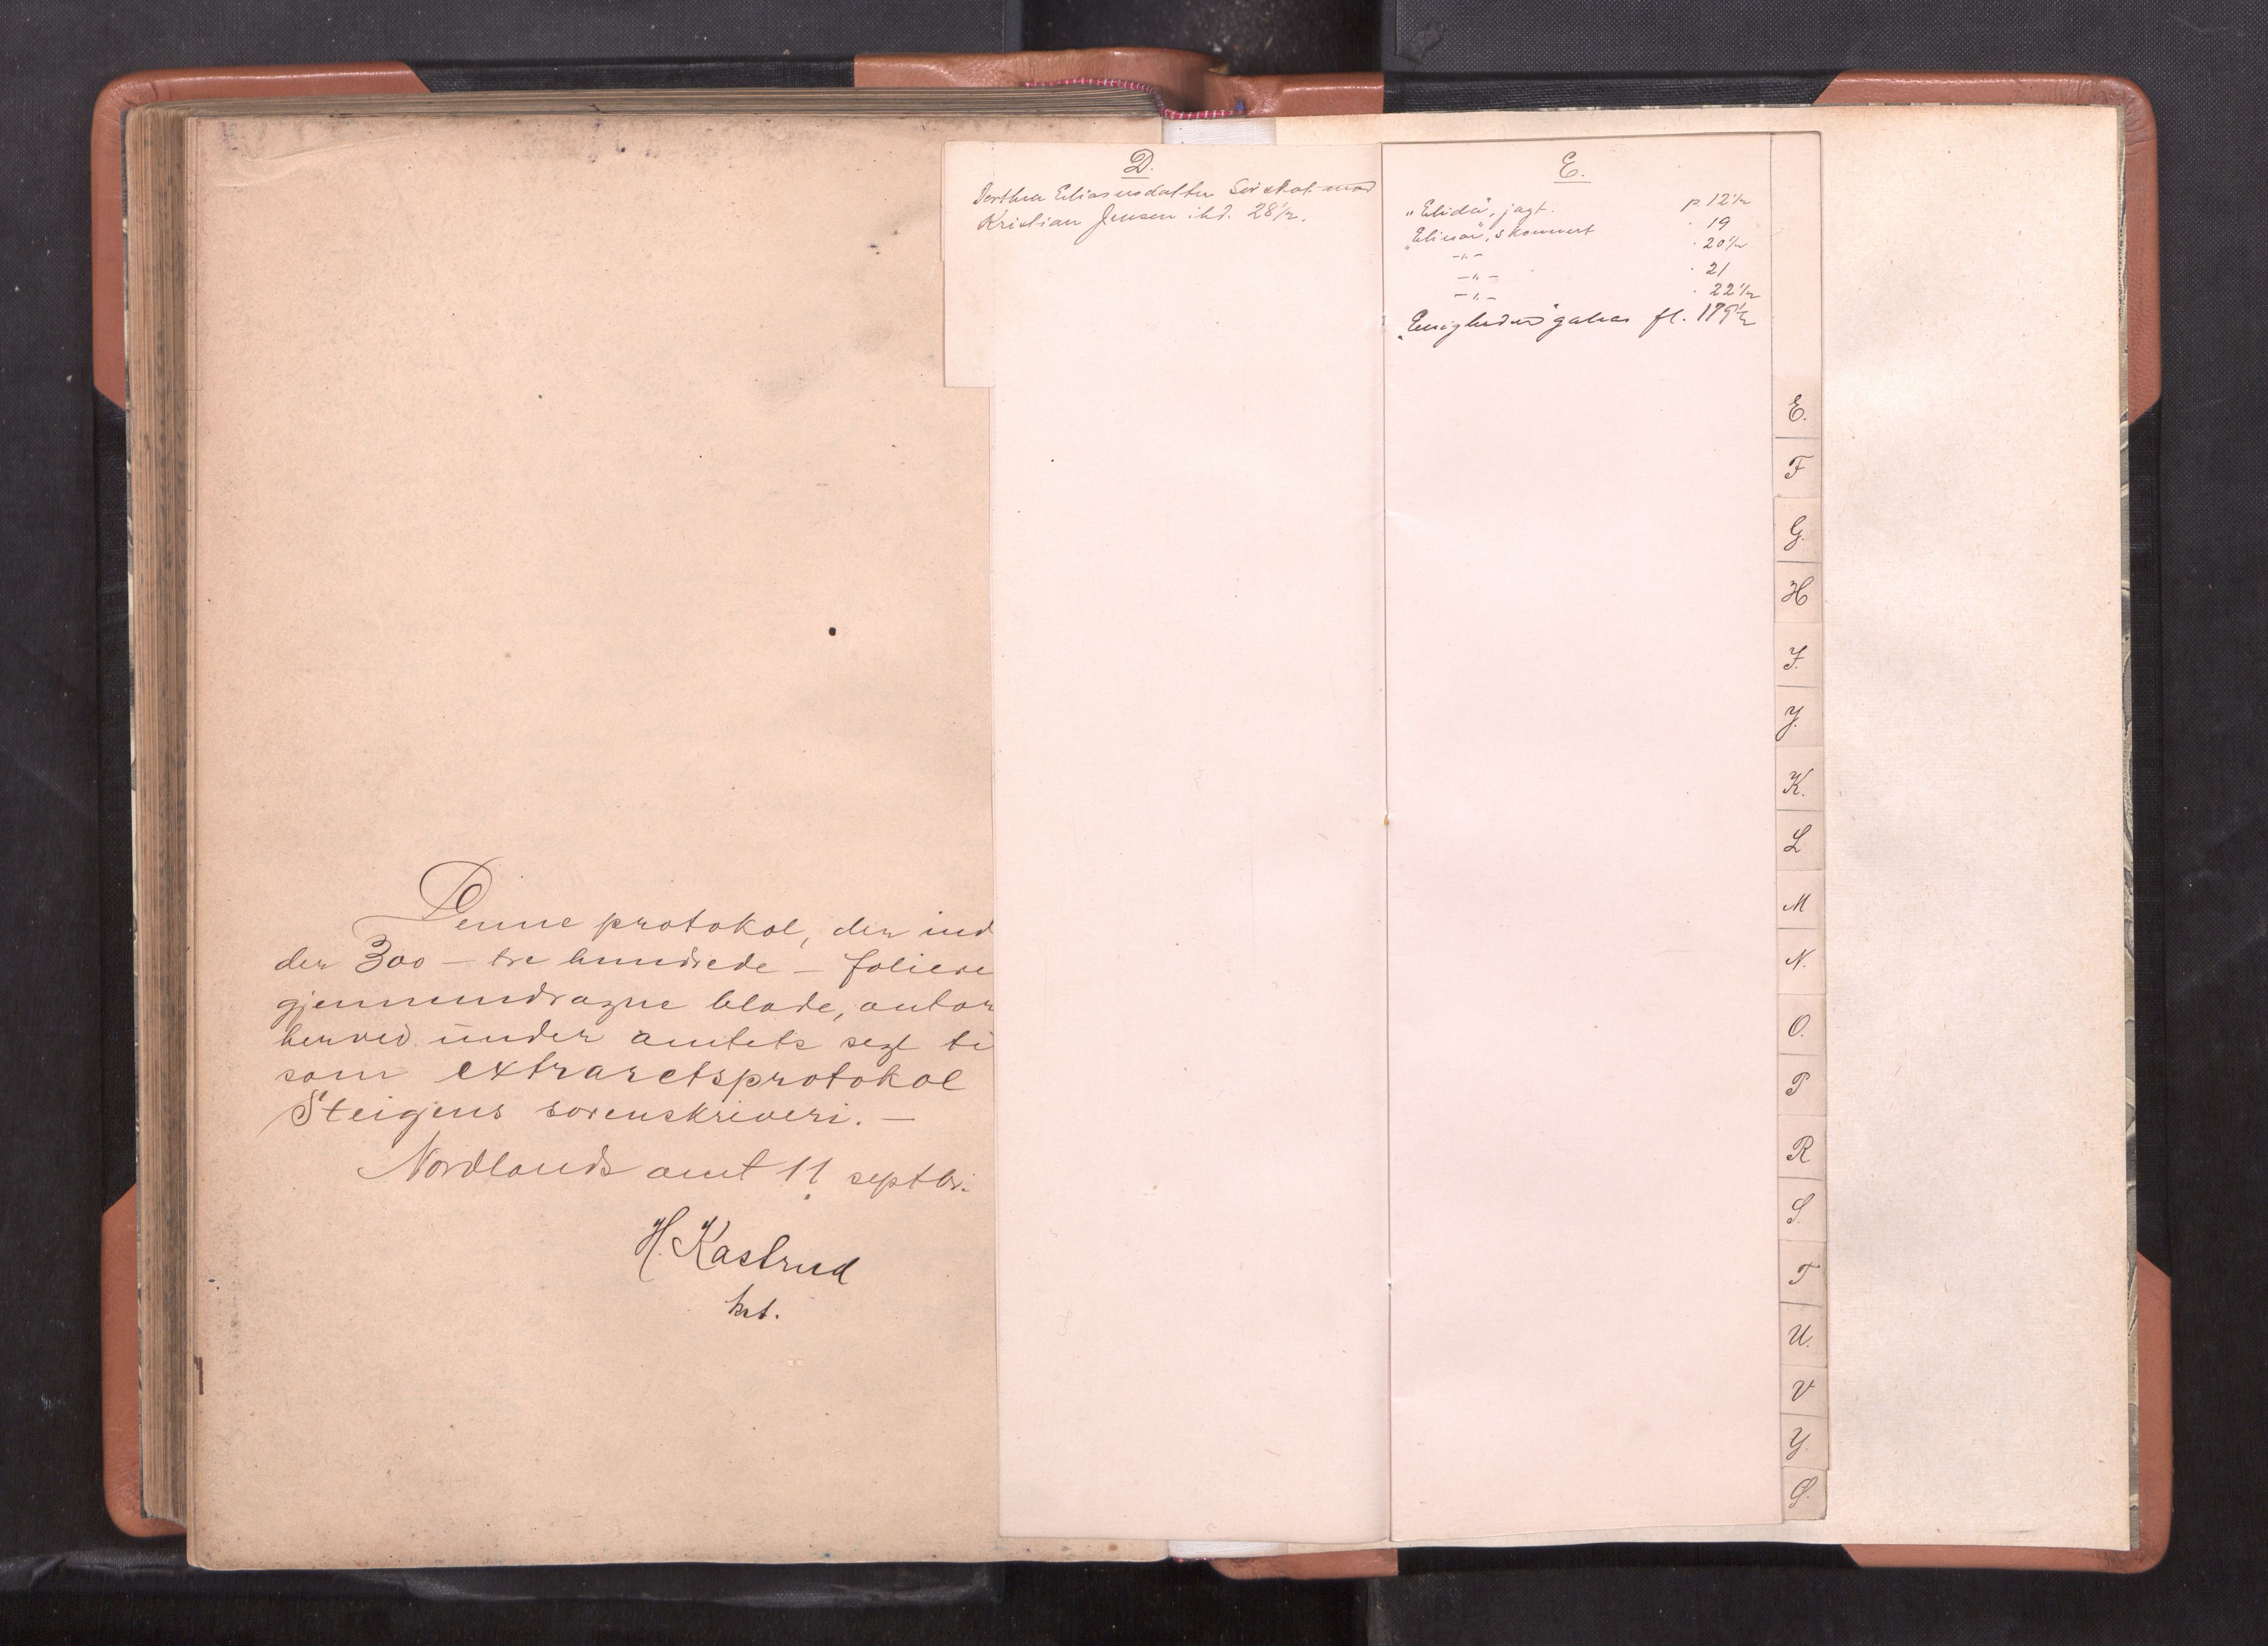 Denne protokol, der ind
der 300 – tre hundrede – foliere
gjennemdragne blade, autor
herved under amtets segl ti
som extraretsprotokol
Steigens sorenskriveri. –
Nordlands amt 11 septbr.
H. Kastrud
kst.
D.
Dorthea Eliasensdatter mod
Kristian Jensen ibd. 28 1/2.
E.
"Elida", jagt. p. 12 1/2
"Elinor", skonnert " 19
–"– " 20 1/2
–"– " 21
–"– " 22 1/2
"Enigheden" galeas fl. 179 1/2
E.
F
G.
H
I.
J.
K.
L
M
N.
O.
P
R
S.
T
U.
V
Y.
Ø.